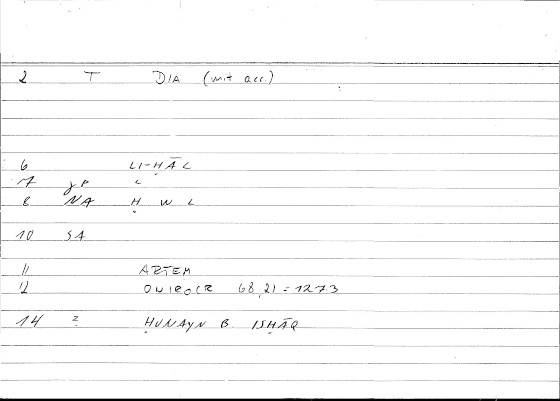 2 T DIA (mit acc.)
6 LI-ḤĀL
7 gP L
8 NA Ḥ W L
10 SA
11 ARTEM
12 ONIROCR 68,21 = 127,3
14 2 ḤUNAYN B. ISḤĀQ